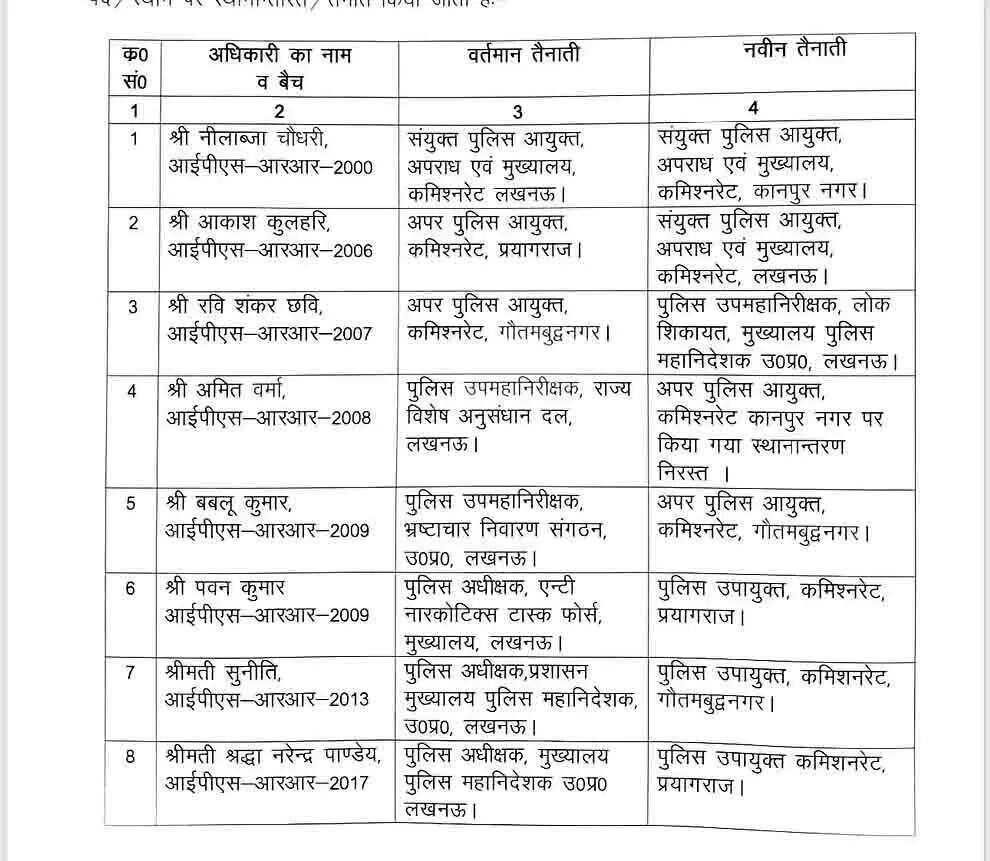 पद/ स्थान पर स्थानान्तरित/ तैनात किया जाता हैः–
क्र0 सं0
अधिकारी का नाम व बैच
वर्तमान तैनाती
नवीन तैनाती
1
2
3
4
1
श्री नीलाब्जा चौधरी,
आईपीएस–आरआर–2000
संयुक्त पुलिस आयुक्त,
अपराध एवं मुख्यालय,
कमिश्नरेट लखनऊ।
संयुक्त पुलिस आयुक्त,
अपराध एवं मुख्यालय,
कमिश्नरेट, कानपुर नगर।
2
श्री आकाश कुलहरि,
आईपीएस–आरआर–2006
अपर पुलिस आयुक्त,
कमिश्नरेट, प्रयागराज।
संयुक्त पुलिस आयुक्त,
अपराध एवं मुख्यालय,
कमिश्नरेट, लखनऊ।
3
श्री रवि शंकर छवि,
आईपीएस–आरआर–2007
अपर पुलिस आयुक्त,
कमिश्नरेट, गौतमबुद्वनगर।
पुलिस उपमहानिरीक्षक, लोक
शिकायत, मुख्यालय पुलिस
महानिदेशक उ0प्र0, लखनऊ।
4
श्री अमित वर्मा,
आईपीएस–आरआर–2008
पुलिस उपमहानिरीक्षक, राज्य
विशेष अनुसंधान दल,
लखनऊ।
अपर पुलिस आयुक्त,
कमिश्नरेट कानपुर नगर पर
किया गया स्थानान्तरण
निरस्त ।
5
श्री बबलू कुमार,
आईपीएस–आरआर–2009
पुलिस उपमहानिरीक्षक,
भ्रष्टाचार निवारण संगठन,
उ0प्र0, लखनऊ।
अपर पुलिस आयुक्त,
कमिश्नरेट, गौतमबुद्वनगर।
6
श्री पवन कुमार
आईपीएस–आरआर–2009
पुलिस अधीक्षक, एन्टी
नारकोटिक्स टास्क फोर्स,
मुख्यालय, लखनऊ।
पुलिस उपायुक्त, कमिश्नरेट,
प्रयागराज।
7
श्रीमती सुनीति,
आईपीएस–आरआर–2013
पुलिस अधीक्षक,प्रशासन
मुख्यालय पुलिस महानिदेशक,
उ0प्र0, लखनऊ।
पुलिस उपायुक्त, कमिशनरेट,
गौतमबुद्वनगर।
8
श्रीमती श्रद्धा नरेन्द्र पाण्डेय,
आईपीएस–आरआर–2017
पुलिस अधीक्षक, मुख्यालय
पुलिस महानिदेशक उ0प्र0
लखनऊ।
पुलिस उपायुक्त कमिशनरेट,
प्रयागराज।